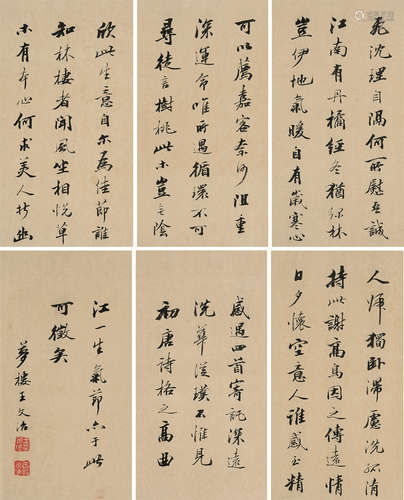 飛沈理自隔何所慰吾誠
江南有丹橘經冬猶綠林
豈伊地氣暖自有歲寒心
可以薦嘉客奈何阻重
深運命唯所遇循環不可
尋徒言樹桃此木豈無陰
欣此生意自尔為佳節誰
知林棲者聞風坐相悅草
木有本心何求美人折幽
人歸獨卧滯慮洗孤清
持此謝高鳥因之傳遠情
日夕懷空意人誰感至精
感遇四首寄託深遠
洗華從璞不惟見
初唐詩格之高曲
江一生氣節亦于此
可徵矣
夢樓王文治